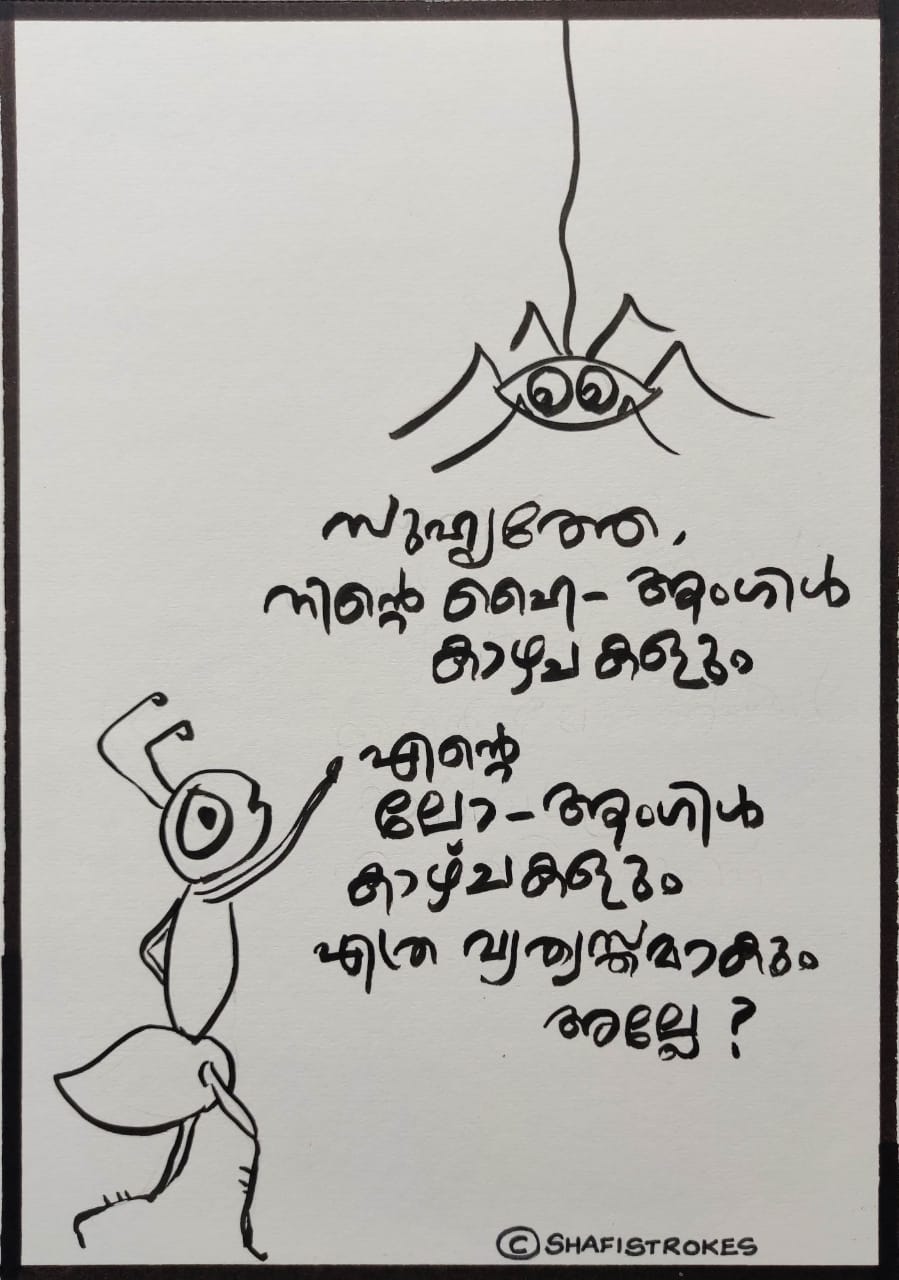 സുഹൃത്തേ,
നിന്റെ ഹൈ-ആംഗിൾ
കാഴ്ചകളും
എന്റെ
ലോ-ആംഗിൾ
കാഴ്ചകളും
എത്ര വ്യത്യസ്തമാകും
അല്ലേ ?
© SHAFISTROKES